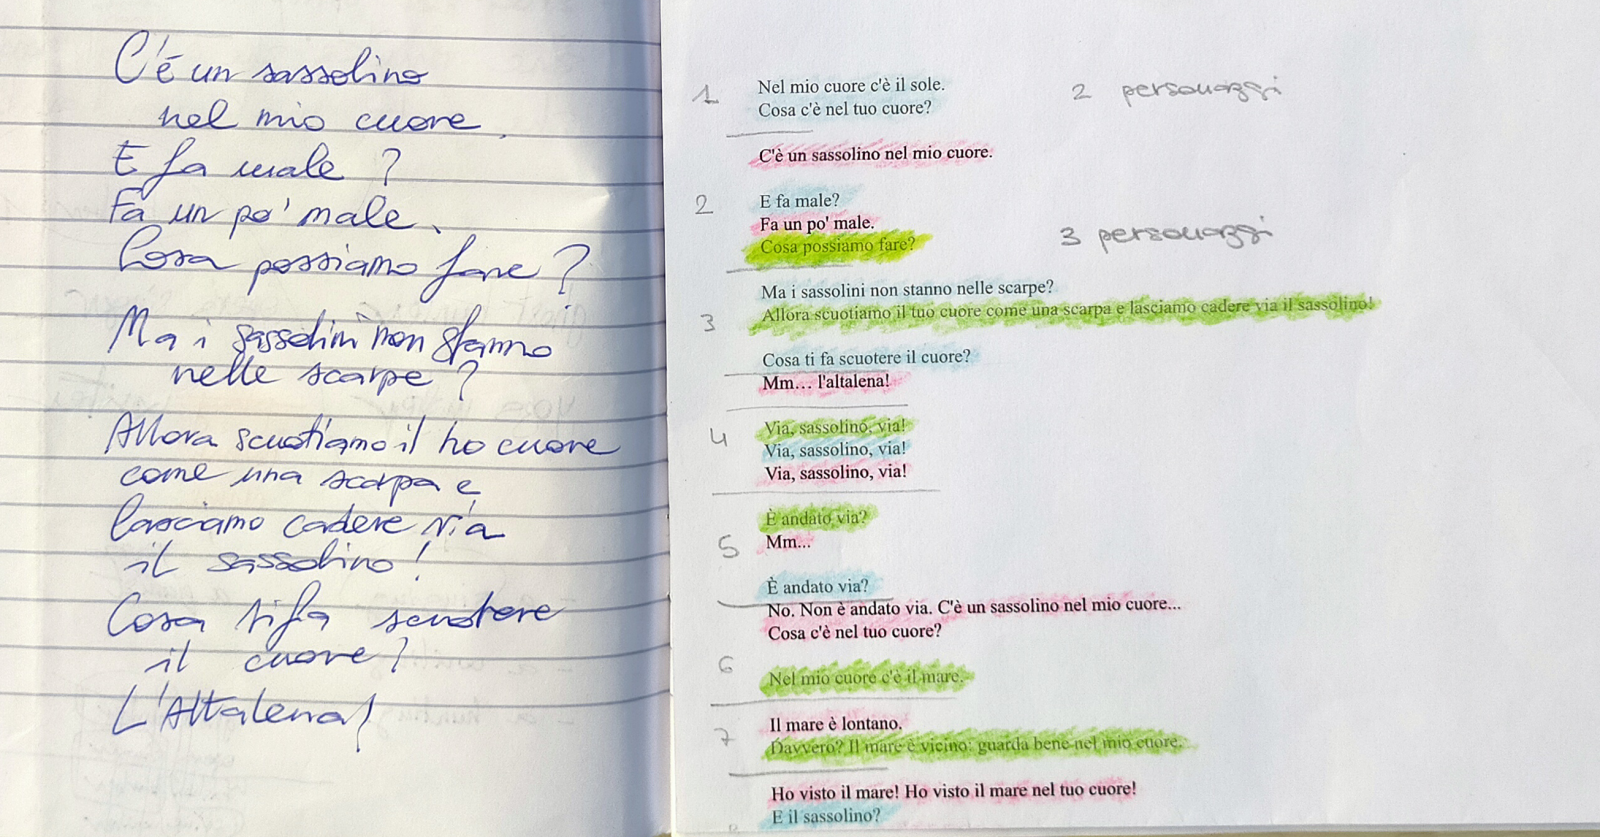 C'è un sassolino
nel mio cuore.
E fa male?
Fa un po' male.
Cosa possiamo fare?
Ma i sassolini non stanno
nelle scarpe?
Allora scuotiamo il tuo cuore
come una scarpa e
lasciamo cadere via
il sassolino!
Cosa ti fa scuotere
il cuore?
L'Altalena!
1
Nel mio cuore c'è il sole.
2 personaggi
Cosa c'è nel tuo cuore?
C'è un sassolino nel mio cuore.
2
E fa male?
Fa un po' male.
3 personaggi
Cosa possiamo fare?
Ma i sassolini non stanno nelle scarpe?
3
Allora scuotiamo il tuo cuore come una scarpa e lasciamo cadere via il sassolino!
Cosa ti fa scuotere il cuore?
Mm... l'altalena!
4
Via, sassolino, via!
Via, sassolino, via!
Via, sassolino, via!
È andato via?
5
Mm...
È andato via?
No. Non è andato via. C'è un sassolino nel mio cuore...
Cosa c'è nel tuo cuore?
6
Nel mio cuore c'è il mare.
Il mare è lontano.
7
Davvero? Il mare è vicino: guarda bene nel mio cuore.
Ho visto il mare! Ho visto il mare nel tuo cuore!
E il sassolino?